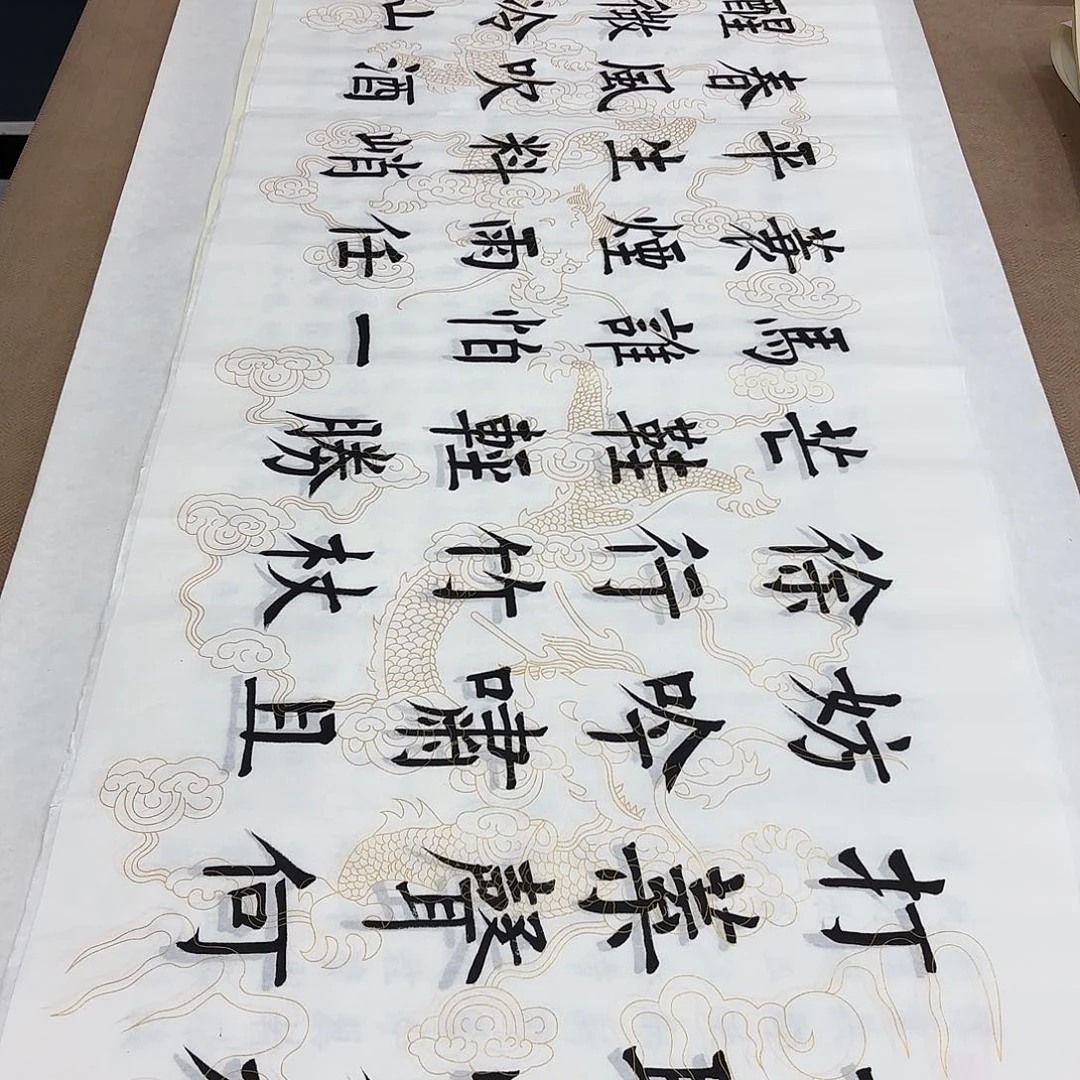 打葉聲何
妨吟嘯且
徐行竹杖
芒鞋輕勝
馬誰怕一
蓑煙雨任
平生料峭
春風吹酒
醒微冷山